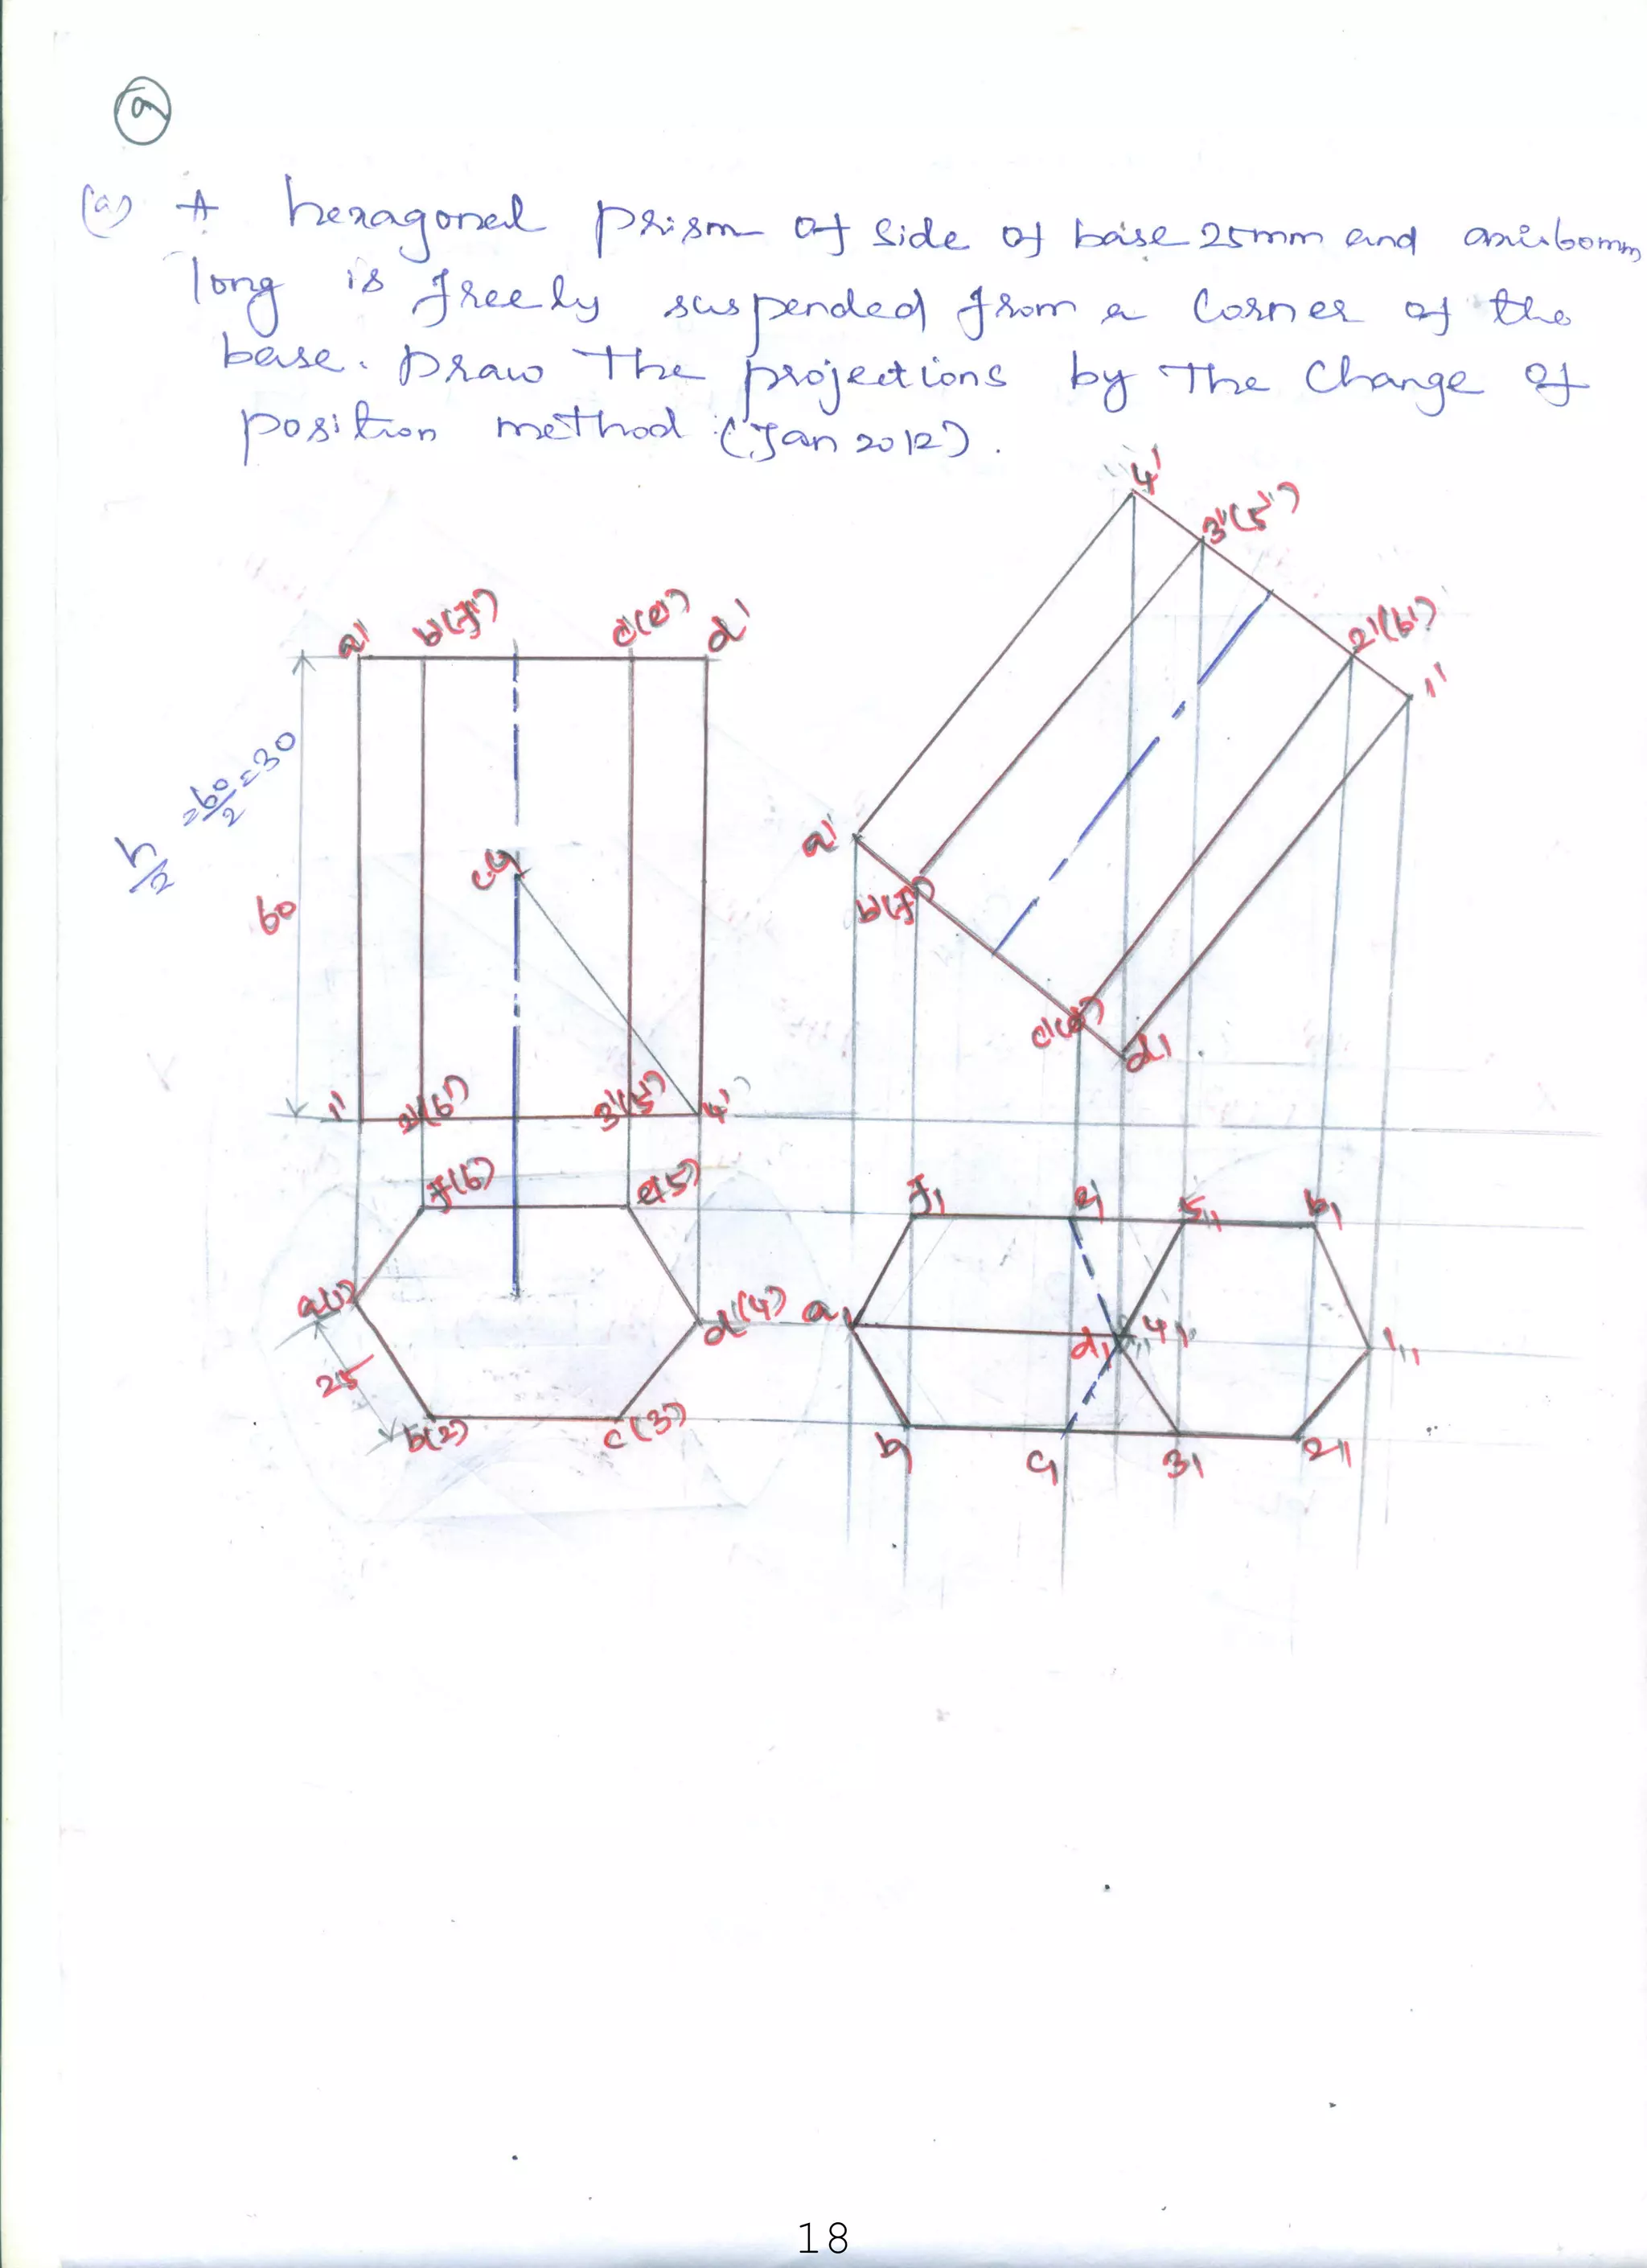 9
(a) A hexagonal prism of side of base 25mm and axis 60mm
long is freely suspended from a corner of the
base. Draw the projections by the change of
position method (Jan 2012).
4'
3'(5')
a' b'(f') c'(e') d'
2'(6')
1'
h/2 = 60/2 = 30
a'
CG
b'(f')
60
c'(e')
d'
1' 2'(6') 3'(5') 4'
f(6) e(5)
f1 e1 51 61
a(1) d(4) a1 d1 41 11
25
b(2) c(3)
b1 c1 31 21
18